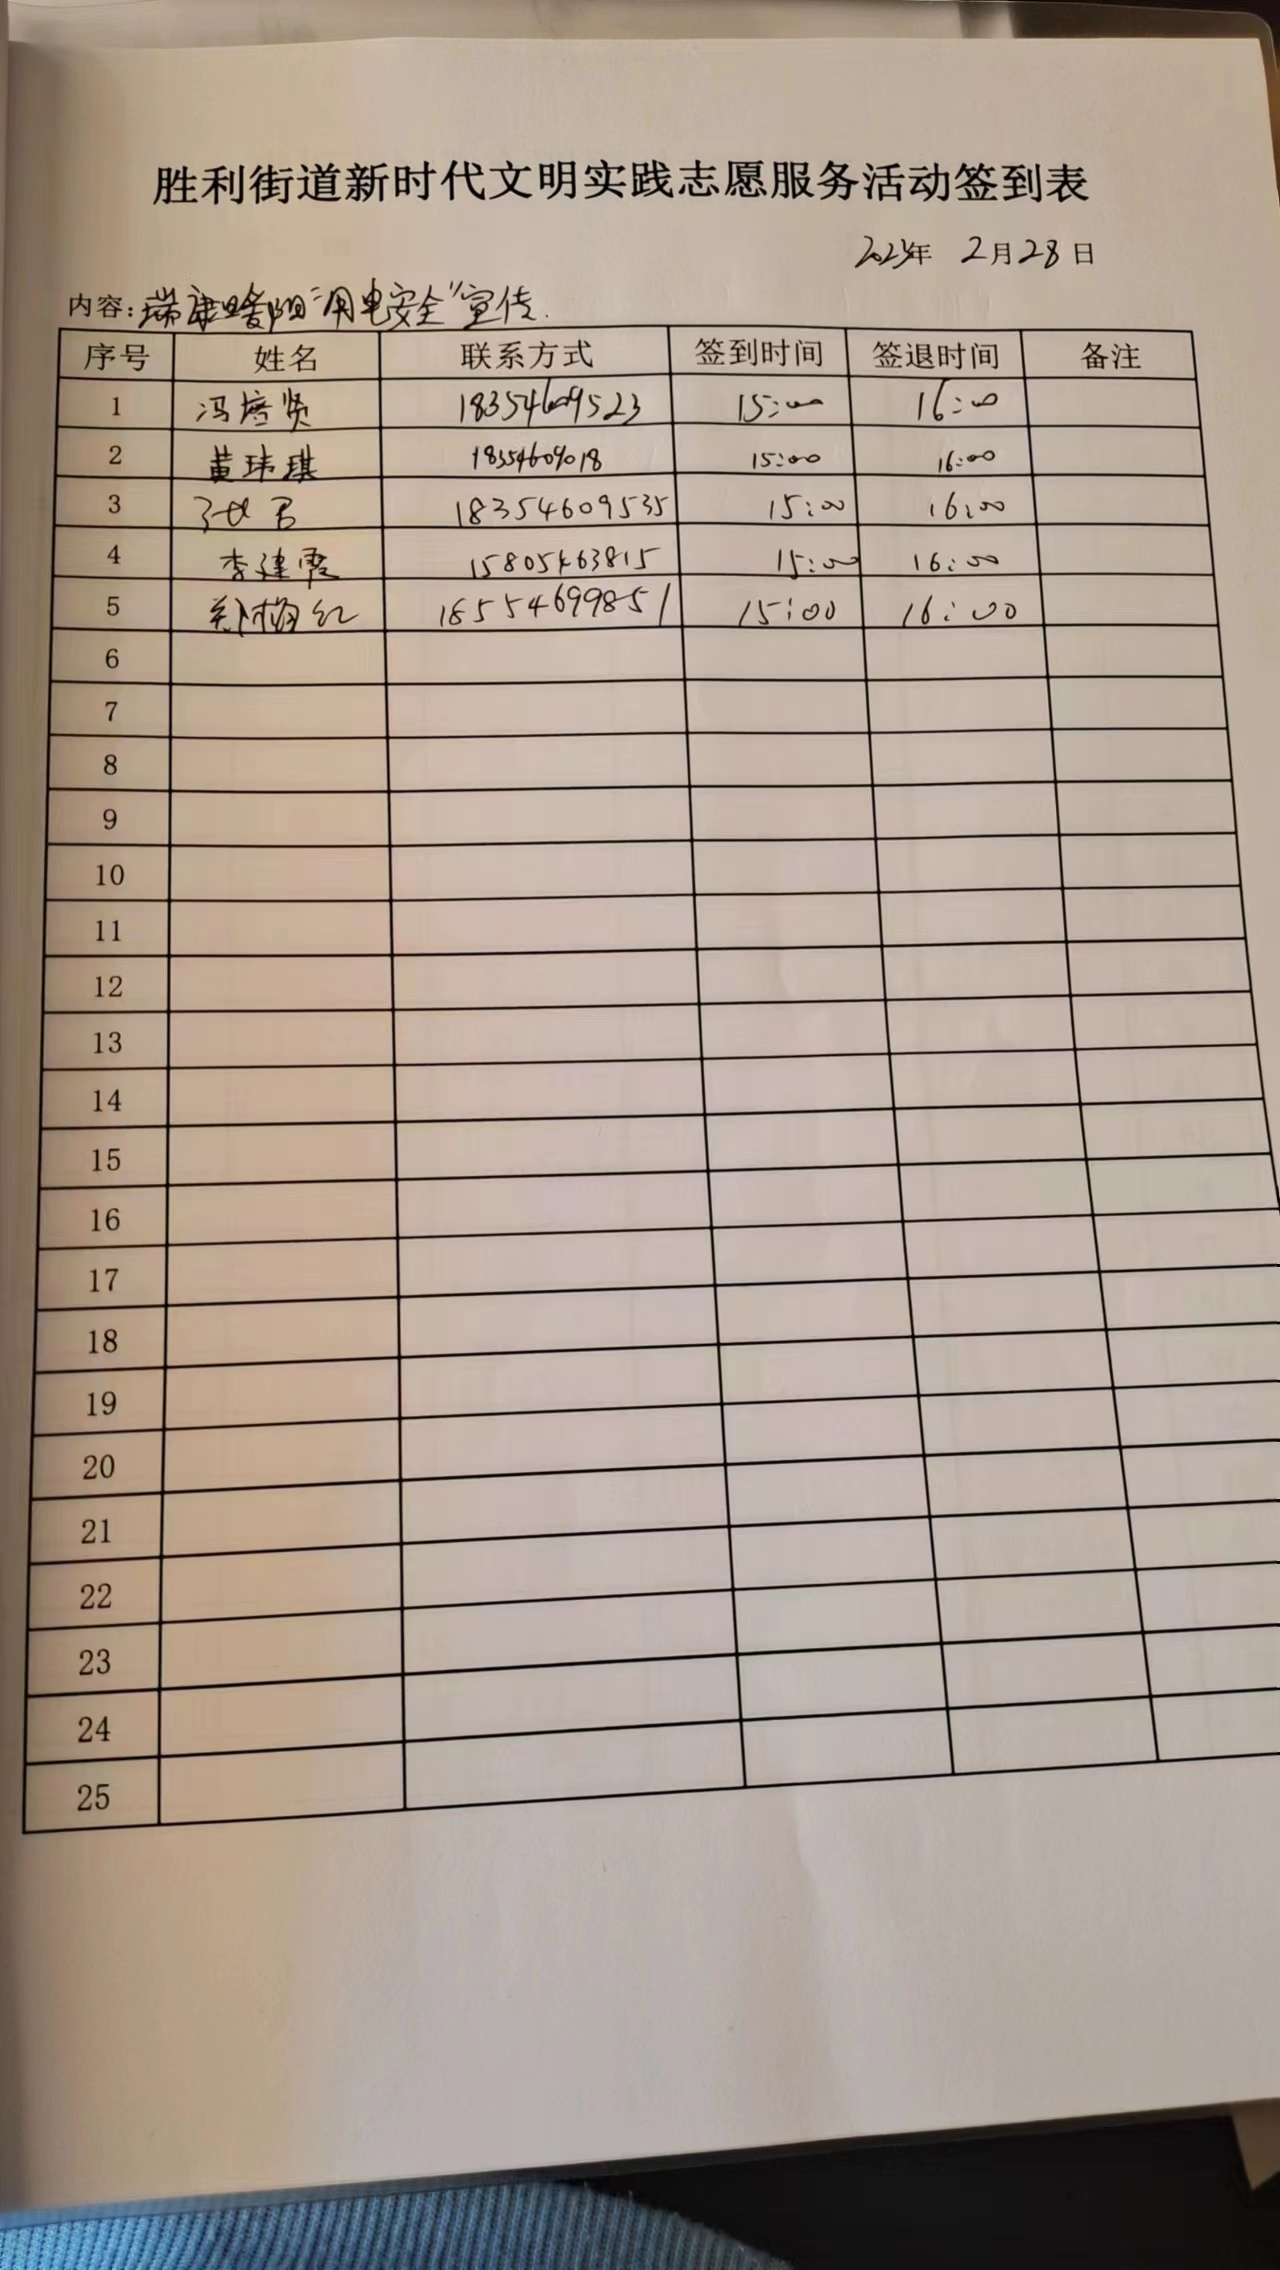 胜利街道新时代文明实践志愿服务活动签到表
年 2月28日
内容:瑞康暖阳“用电安全”宣传.
序号 姓名 联系方式 签到时间 签退时间 备注
1 冯培贤 18354609523 15:00 16:00
2 黄玮琪 18354609018 15:00 16:00
3 18354609535 15:00 16:00
4 李建霞 15805463815 15:00 16:00
5 郑梅红 18554699851 15:00 16:00
6
7
8
9
10
11
12
13
14
15
16
17
18
19
20
21
22
23
24
25